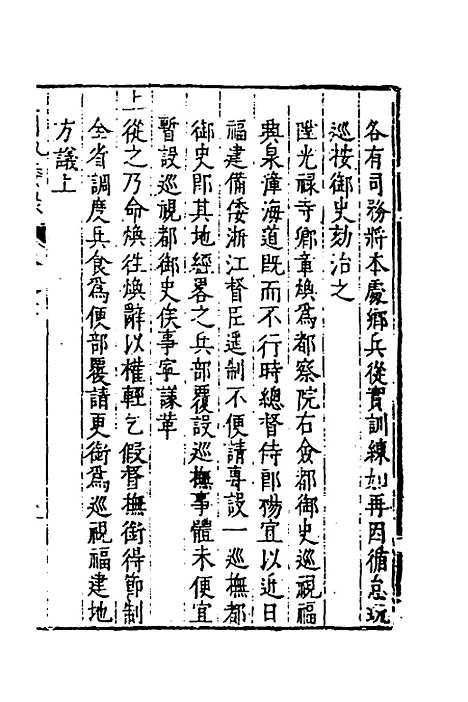 各有司務將本處鄉兵從實訓練如再因循怠玩
巡按御史劾治之
陞光祿寺卿章煥爲都察院右僉都御史巡視福
興泉漳海道既而不行時總督侍郎楊宜以近日
福建備倭浙江督臣遥制不便請專設一巡撫都
御史即其地經畧之兵部覆設巡撫事體未便宜
暫設巡視都御史俟事寧議革
上從之乃命煥往煥辭以權輕乞假督撫銜得節制
全省調度兵食爲便部覆請更銜爲巡視福建地
方議上